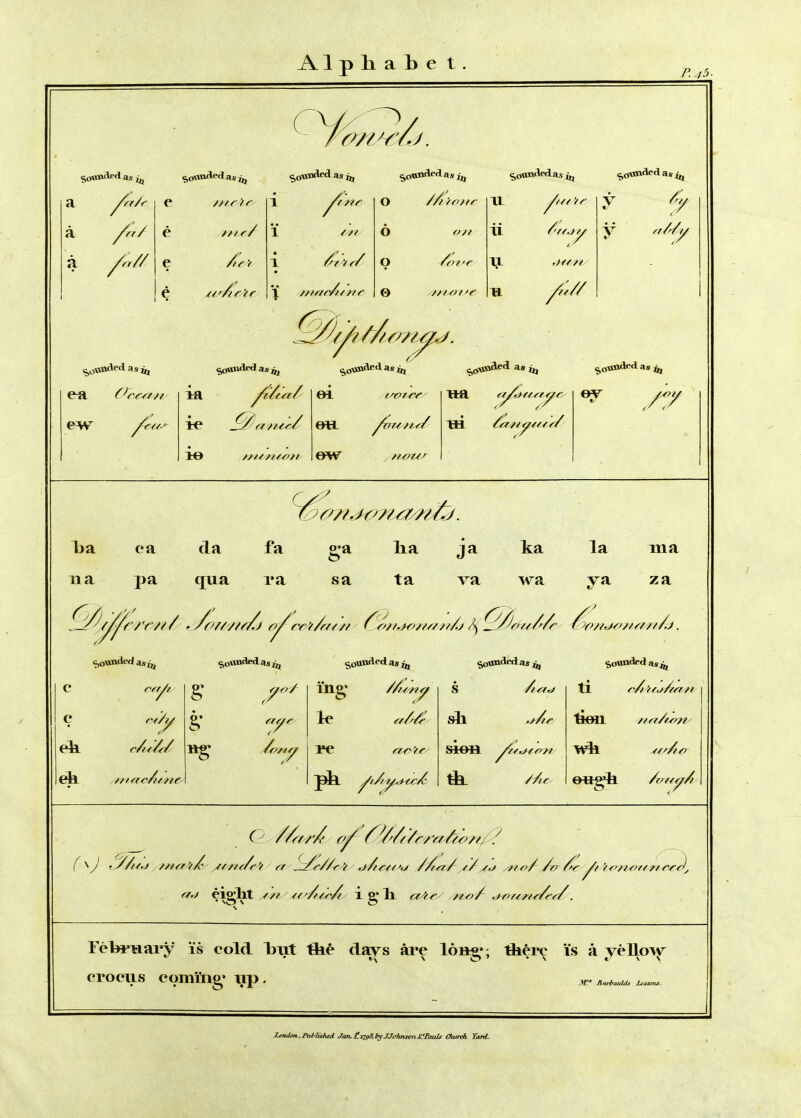 Alphabet.
P. 45.
Vowels.
Sounded as in Sounded as in Sounded as in Sounded as in Sounded as in Sounded as in
a fate e mere i fine o throne u pure y by
ȧ fat ė met ï in ȯ on ü busy ÿ ally
ạ fall ẹ her ị bird ọ love ụ sun
ẹ̇ where ị̈ machine ɵ move ʉ full
Dipthongs.
Sounded as in Sounded as in Sounded as in Sounded as in Sounded as in
ea Ocean ia filial oi voice ua assuage oy joy
ew few ie Daniel ou found ui languid
io minion ow now
Consonants.
ba ca da fa ga ha ja ka la ma
na pa qua ra sa ta va wa ya za
Different Sounds of certain Consonants & Double Consonants.
Sounded as in Sounded as in Sounded as in Sounded as in Sounded as in
c cap g got ïng thing s has ti christian
c̣ city ġ age le able sh she tion nation
ch child ng long re acre sion fusion wh who
cḥ machine ph physick th the ough tough
Mark of Obliteration.
(\) This mark under a Letter shews that it is not to be pronounced,
as eight in which i g h are not sounded.
February ïs cold but the days are long; there ïs a yellow
crocus comïng up.
Mrs. Barbaulds Lessons.
London, Published Jan. 1, 1798, by J. Johnson St. Pauls Church Yard.